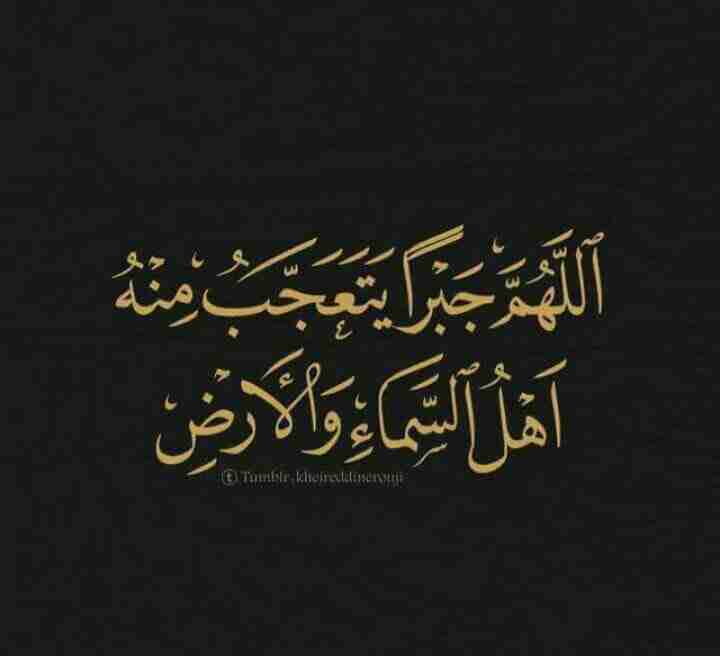 ٱللَّهُمَّ جَبْراً يَتَعَجَّبُ مِنْهُ
اَهْلُ ٱلسَّمَاءِ وَالْأَرْضِ
Tumblr.kheireddineronji